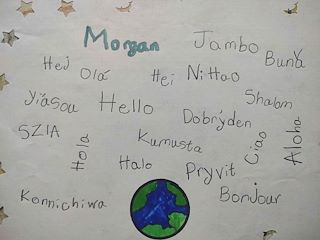 Morgan
Jambo
Bună
Hej
Olá
Hei
Ni Hao
Yiasou
Hello
Shalom
Dobrýden
SZIA
Hola
Kumusta
Ciao
Aloha
Halo
Pryvit
Konnichiwa
Bonjour